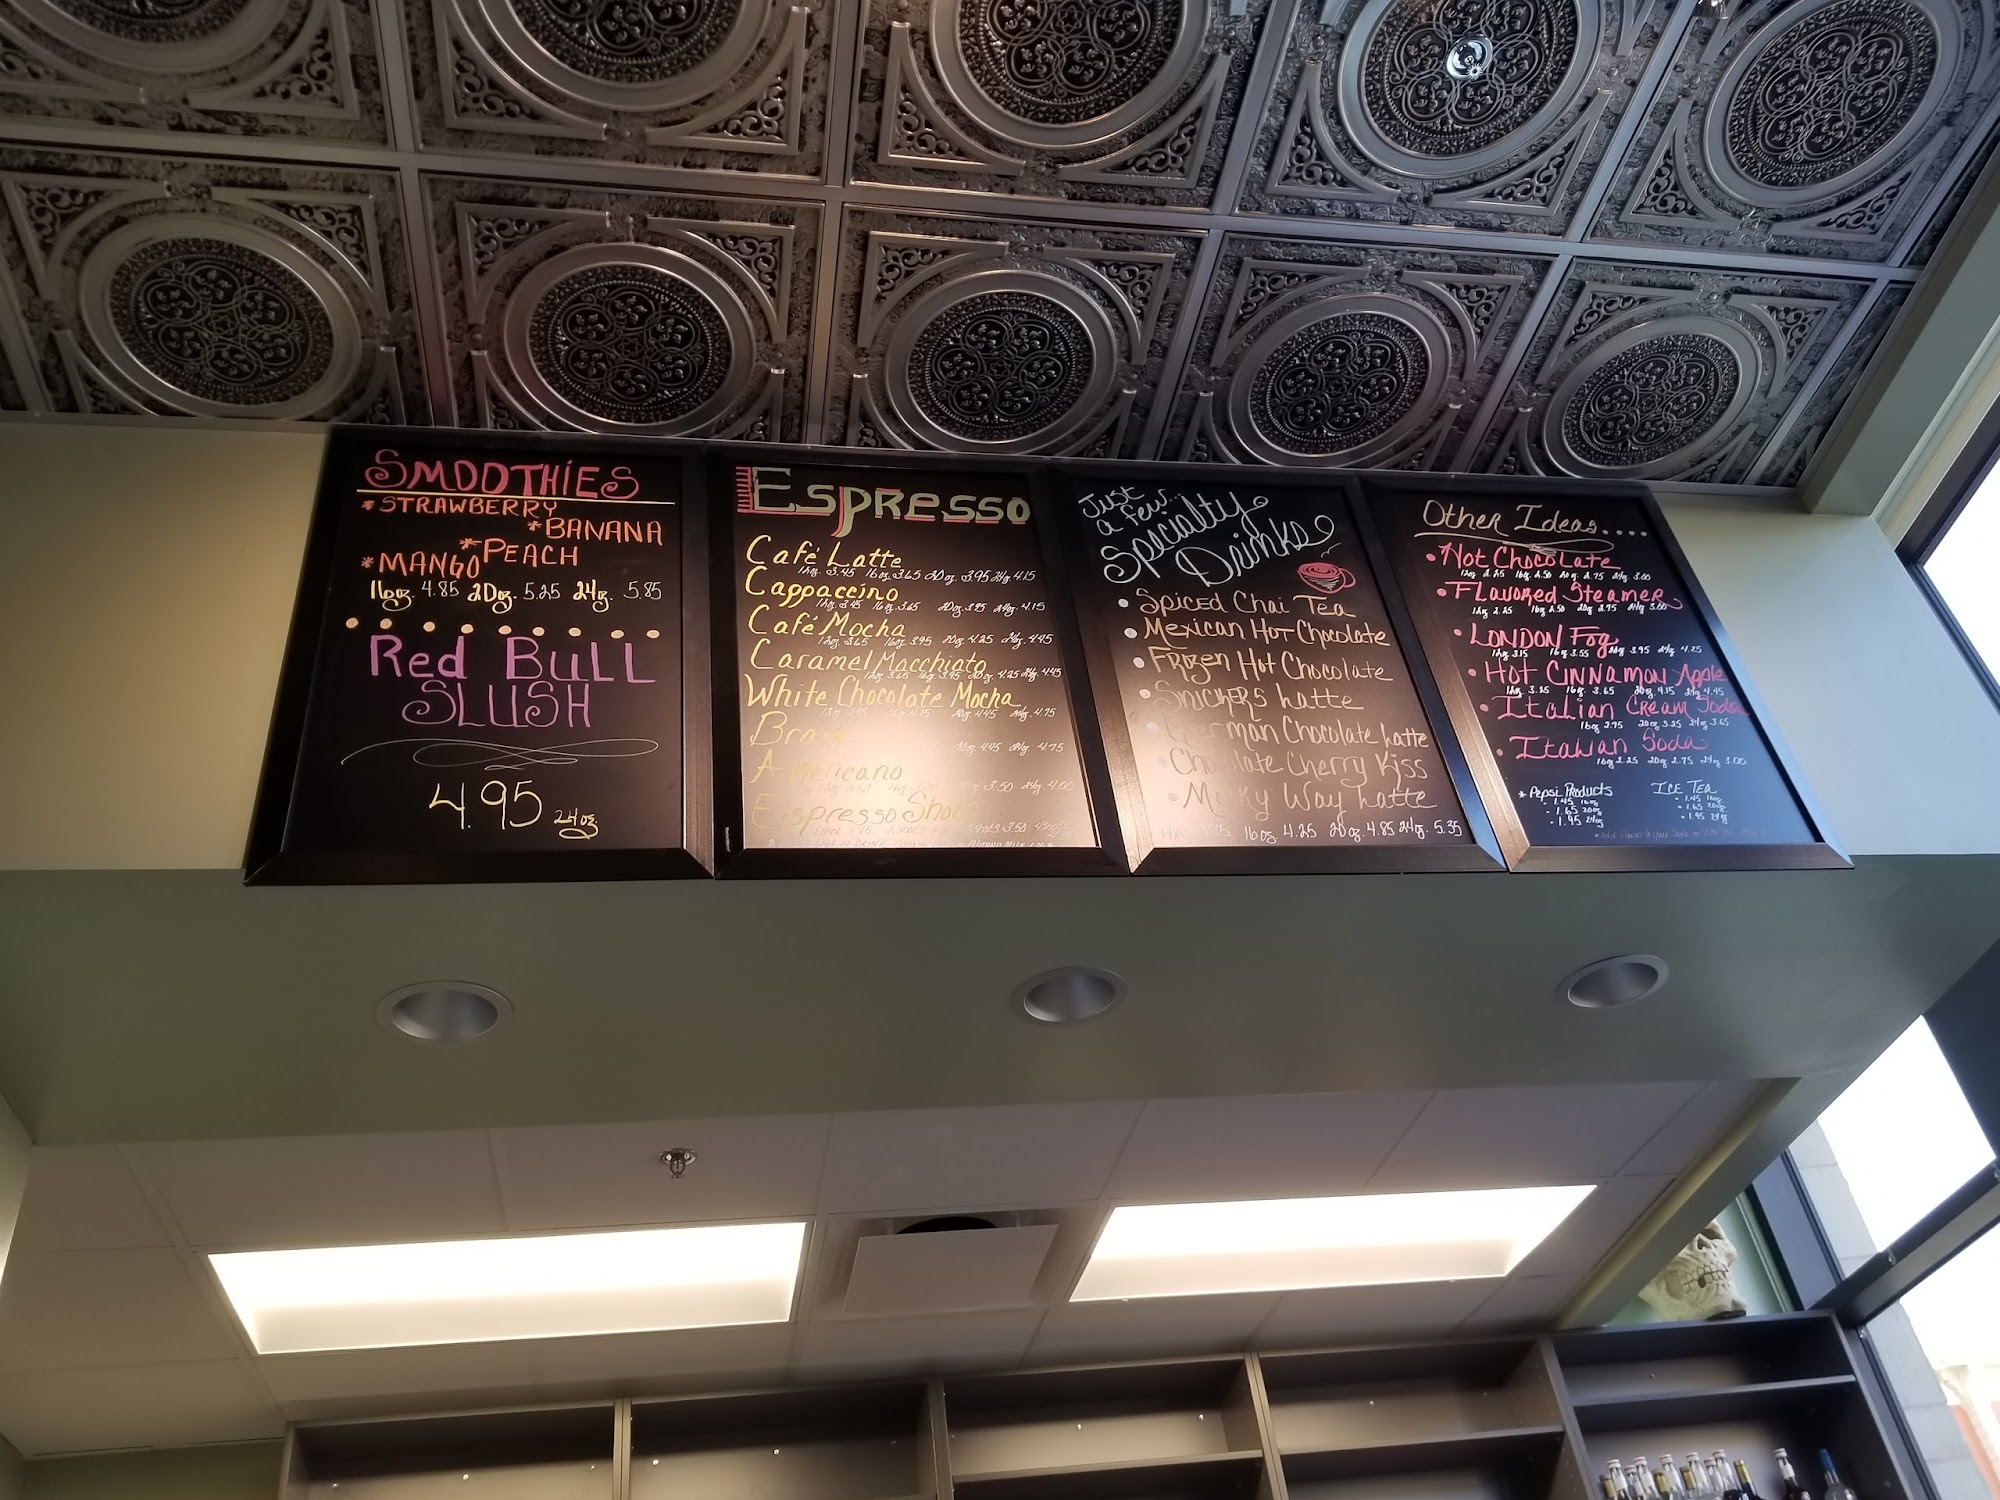 SMOOTHIES
*STRAWBERRY
*BANANA
*PEACH
*MANGO
16oz. 4.85 20oz. 5.25 24oz. 5.85
Red BULL
SLUSH
4.95 24oz.
Espresso
Café Latte
12oz. 3.45 16oz. 3.65 20oz. 3.95 24oz. 4.15
Cappaccino
12oz. 3.45 16oz. 3.65 20oz. 3.95 24oz. 4.15
Café Mocha
12oz. 3.65 16oz. 3.95 20oz. 4.25 24oz. 4.45
Caramel Macchiato
12oz. 3.65 16oz. 3.95 20oz. 4.25 24oz. 4.45
White Chocolate Mocha
20oz. 4.45 24oz. 4.75
20oz. 4.45 24oz. 4.75
Americano
3.50 24oz. 4.00
Espresso
Just
a few...
Specialty
Drinks
Spiced Chai Tea
Mexican Hot Chocolate
Frozen Hot Chocolate
Snickers Latte
German Chocolate Latte
Chocolate Cherry Kiss
Milky Way Latte
16oz. 4.25 20oz. 4.85 24oz. 5.35
Other Ideas....
• Hot Chocolate
12oz 2.25 16oz. 2.50 20oz. 2.75 24oz. 3.00
• Flavored Steamer
12oz. 2.25 16oz 2.50 20oz 2.75 24oz 3.00
• London Fog
12oz 3.15 16oz. 3.55 20oz 3.95 24oz. 4.25
• Hot Cinnamon Apple
12oz. 3.25 16oz. 3.65 20oz. 4.15 24oz. 4.45
• Italian Cream Soda
16oz 2.75 20oz 3.25 24oz 3.65
• Italian Soda
16oz 2.25 20oz. 2.75 24oz 3.00
* Pepsi Products
- 1.45 16oz
- 1.65 20oz
- 1.95 24oz
Ice Tea
- 1.45 16oz
- 1.65 20oz
- 1.95 24oz